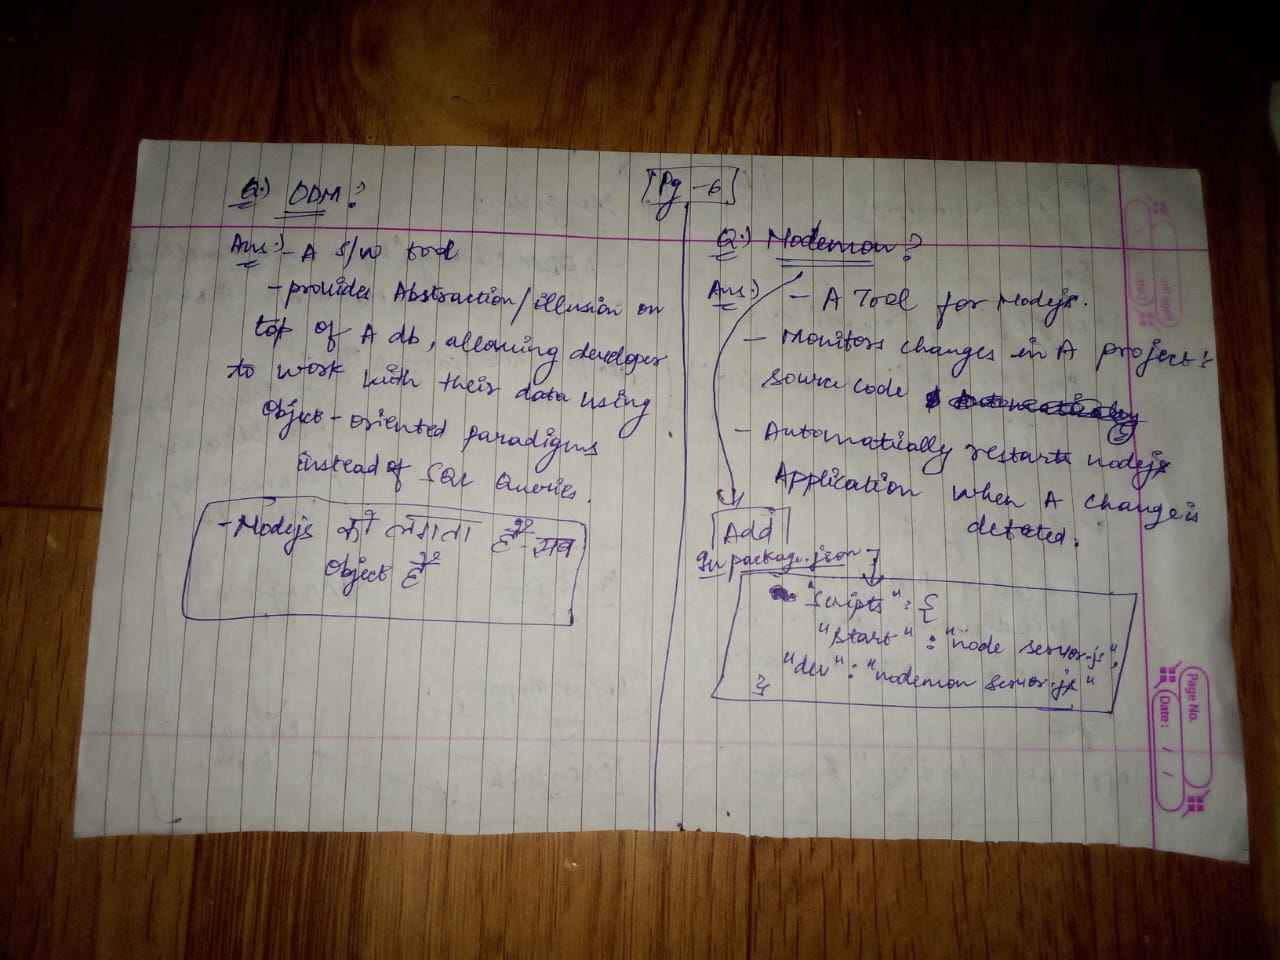 Pg - 6
Q:) ODM?
Ans:- - A S/W tool
- provides Abstraction/illusion on
top of A db, allowing developer
to work with their data using
Object-oriented paradigms
instead of SQL Queries.
- Nodejs को लगता है सब
Object है
Q:) Nodemon?
Ans:) - A Tool for Nodejs.
- Monitors changes in A project's
source code
- Automatically restarts nodejs
Application when A change is
detected.
Add
In package.json :-
"scripts" : {
"start" : "node server.js",
"dev" : "nodemon server.js"
}
Page No.
Date : / /